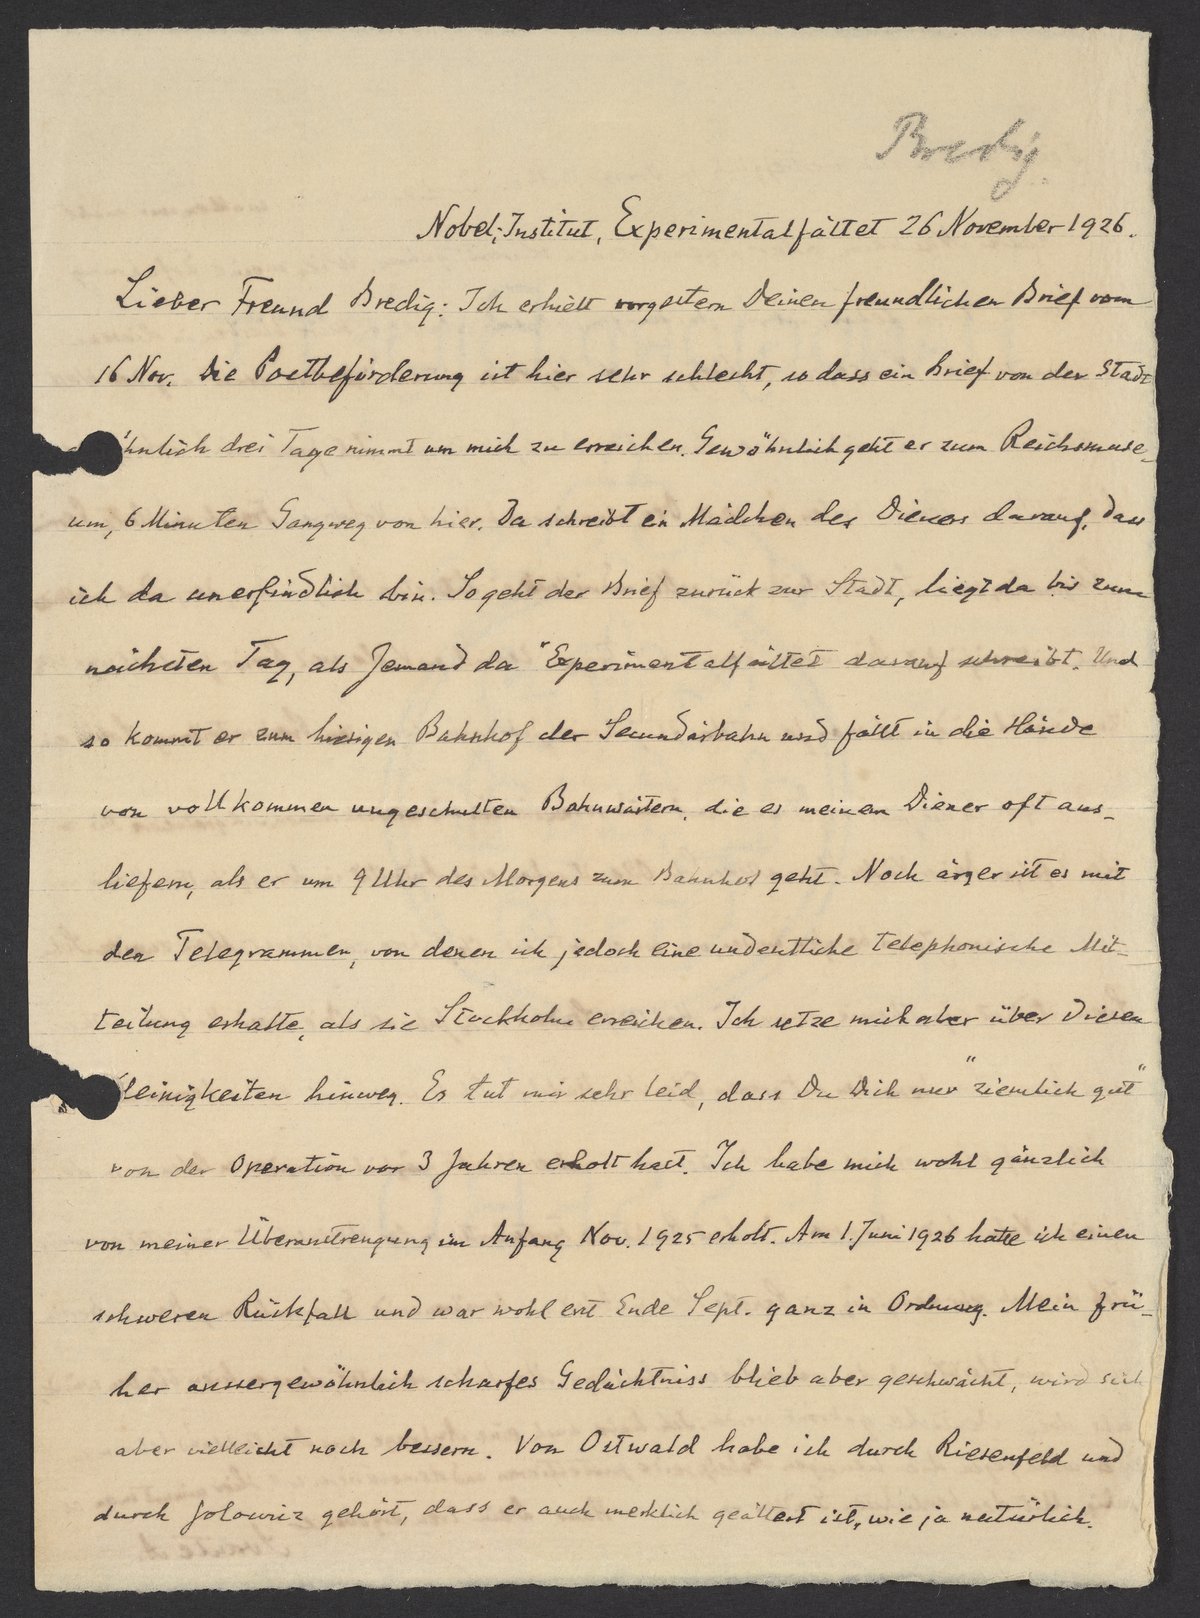 Bredig.
Nobel-Institut, Experimentalfältet 26 November 1926.
Lieber Freund Bredig: Ich erhielt vorgestern Deinen freundlichen Brief vom
16 Nov. Die Postbeförderung ist hier sehr schlecht, so dass ein Brief von der Stadt
hnlich drei Tage nimmt um mich zu erreichen. Gewöhnlich geht er zum Reichsmuse-
um, 6 Minuten Gangweg von hier. Da schreibt ein Mädchen des Dieners darauf, dass
ich da unerfindlich bin. So geht der Brief zurück zur Stadt, liegt da bis zum
nächsten Tag, als Jemand da "Experimentalfältet darauf schreibt. Und
so kommt er zum hiesigen Bahnhof der Secundärbahn und fällt in die Hände
von vollkommen ungeschulten Bahnwärtern, die es meinem Diener oft aus-
liefern, als er um 9 Uhr des Morgens zum Bahnhof geht. Noch ärger ist es mit
den Telegrammen, von denen ich jedoch eine undeutliche telephonische Mit-
teilung erhalte, als sie Stockholm erreichen. Ich setze mich aber über diesen
leinigkeiten hinweg. Es tut mir sehr leid, dass Du Dich nur "ziemlich gut"
von der Operation vor 3 Jahren erholt hast. Ich habe mich wohl gänzlich
von meiner Überanstrengung im Anfang Nov. 1925 erholt. Am 1. Juni 1926 hatte ich einen
schweren Rückfall und war wohl erst Ende Sept. ganz in Ordnung. Mein frü-
her aussergewöhnlich scharfes Gedächtniss blieb aber geschwächt, wird sich
aber vielleicht noch bessern. Von Ostwald habe ich durch Riesenfeld und
durch Jolowicz gehört, dass er auch merklich geältert ist, wie ja natürlich.